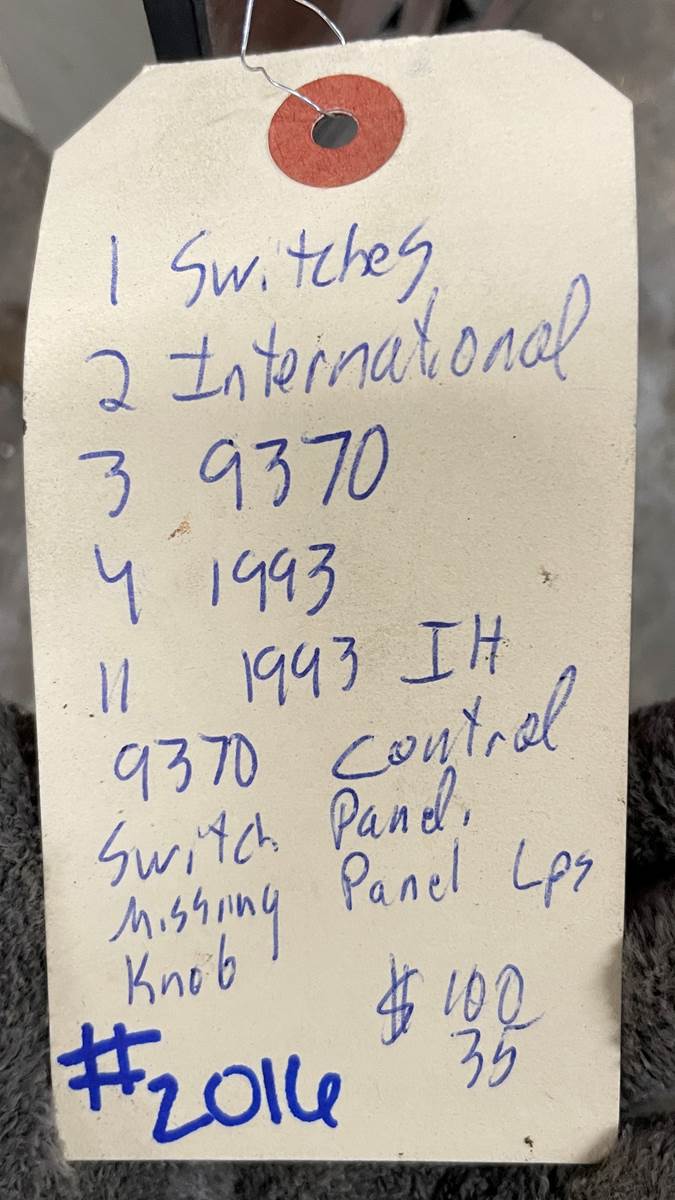 1 Switches
2 International
3 9370
4 1993
11 1993 IH
9370 Control
Switch Panel.
Missing Panel Lps
Knob
$ 100
35
#2016